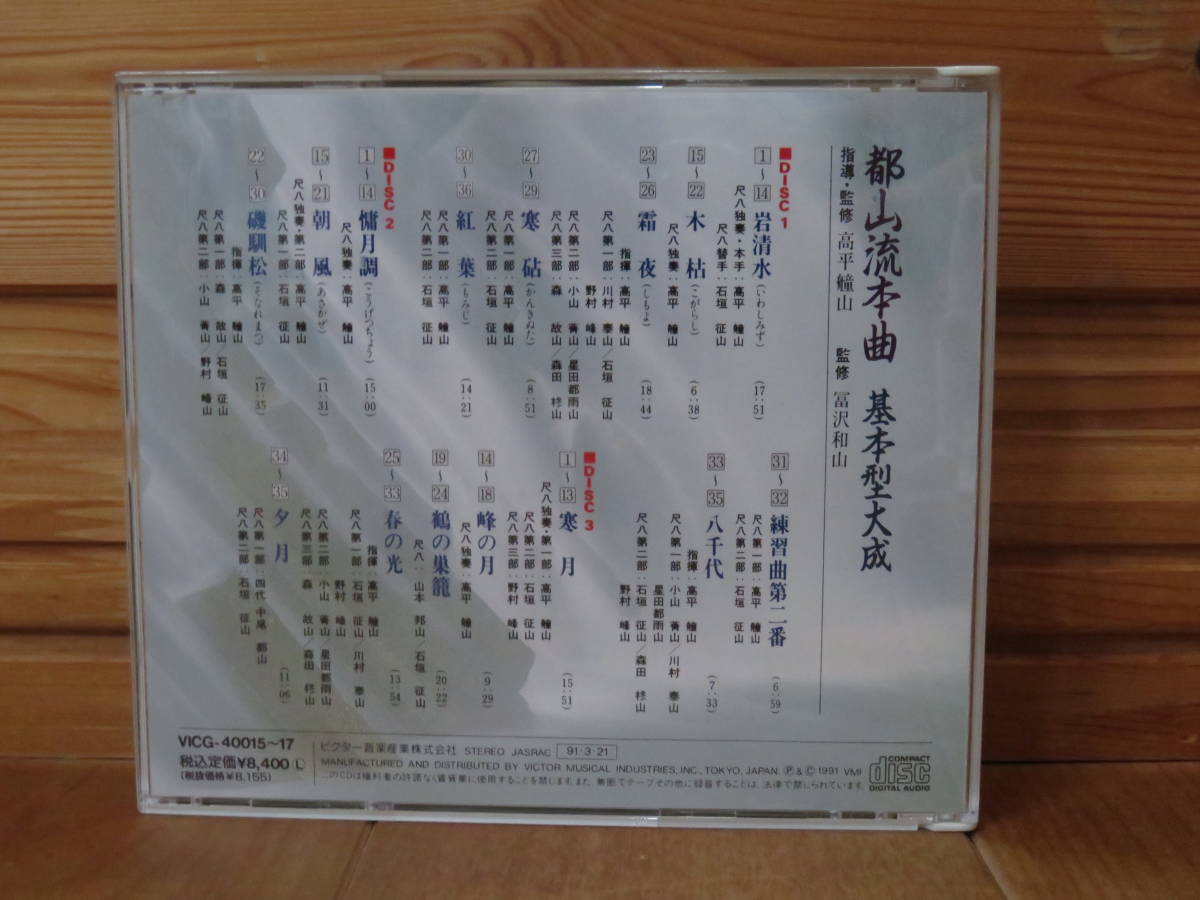 都山流本曲 基本型大成
指導・監修 高平艟山 監修 冨沢和山
■DISC 1
1〜14 岩清水(いわしみず)(17:51)
尺八独奏・本手:高平 艟山
尺八替手:石垣 征山
15〜22 木枯(こがらし)(6:38)
尺八独奏:高平 艟山
23〜26 霜夜(しもよ)(18:44)
指揮:高平 艟山
尺八第一部:川村 泰山/石垣 征山
野村 峰山
尺八第二部:小山 菁山/星田都雨山
尺八第三部:森 故山/森田 柊山
27〜29 寒砧(かんきぬた)(8:51)
尺八第一部:高平 艟山
尺八第二部:石垣 征山
30〜36 紅葉(もみじ)(14:21)
尺八第一部:高平 艟山
尺八第二部:石垣 征山
■DISC 2
1〜14 慷月調(こうげつちょう)(15:00)
尺八独奏:高平 艟山
15〜21 朝風(あさかぜ)(11:31)
尺八独奏・第二部:高平 艟山
尺八第一部:石垣 征山
22〜30 磯馴松(そなれまつ)(17:35)
指揮:高平 艟山
尺八第一部:森 故山/石垣 征山
尺八第二部:小山 菁山/野村 峰山
31〜32 練習曲第二番(6:59)
尺八第一部:高平 艟山
尺八第二部:石垣 征山
33〜35 八千代(7:33)
指揮:高平 艟山
尺八第一部:小山 菁山/川村 泰山
星田都雨山
尺八第二部:石垣 征山/森田 柊山
野村 峰山
■DISC 3
1〜13 寒月(15:51)
尺八独奏・第一部:高平 艟山
尺八第二部:石垣 征山
尺八第三部:野村 峰山
14〜18 峰の月(9:29)
尺八独奏:高平 艟山
19〜24 鶴の巣籠(20:22)
尺八:山本 邦山/石垣 征山
25〜33 春の光(13:54)
指揮:高平 艟山
尺八第一部:石垣 征山/川村 泰山
野村 峰山
尺八第二部:小山 菁山/星田都雨山
尺八第三部:森 故山/森田 柊山
34〜35 夕月(11:06)
尺八第一部:四代 中尾 都山
尺八第二部:石垣 征山
VICG-40015〜17
税込定価¥8,400 L
(税抜価格¥8,155)
ビクター音楽産業株式会社 STEREO JASRAC 91・3・21
MANUFACTURED AND DISTRIBUTED BY VICTOR MUSICAL INDUSTRIES, INC., TOKYO, JAPAN. Ⓟ & © 1991 VMI
このCDは権利者の許諾なく賃貸業に使用することを禁じます。また、無断でテープその他に録音することは、法律で禁じられています。
COMPACT disc DIGITAL AUDIO